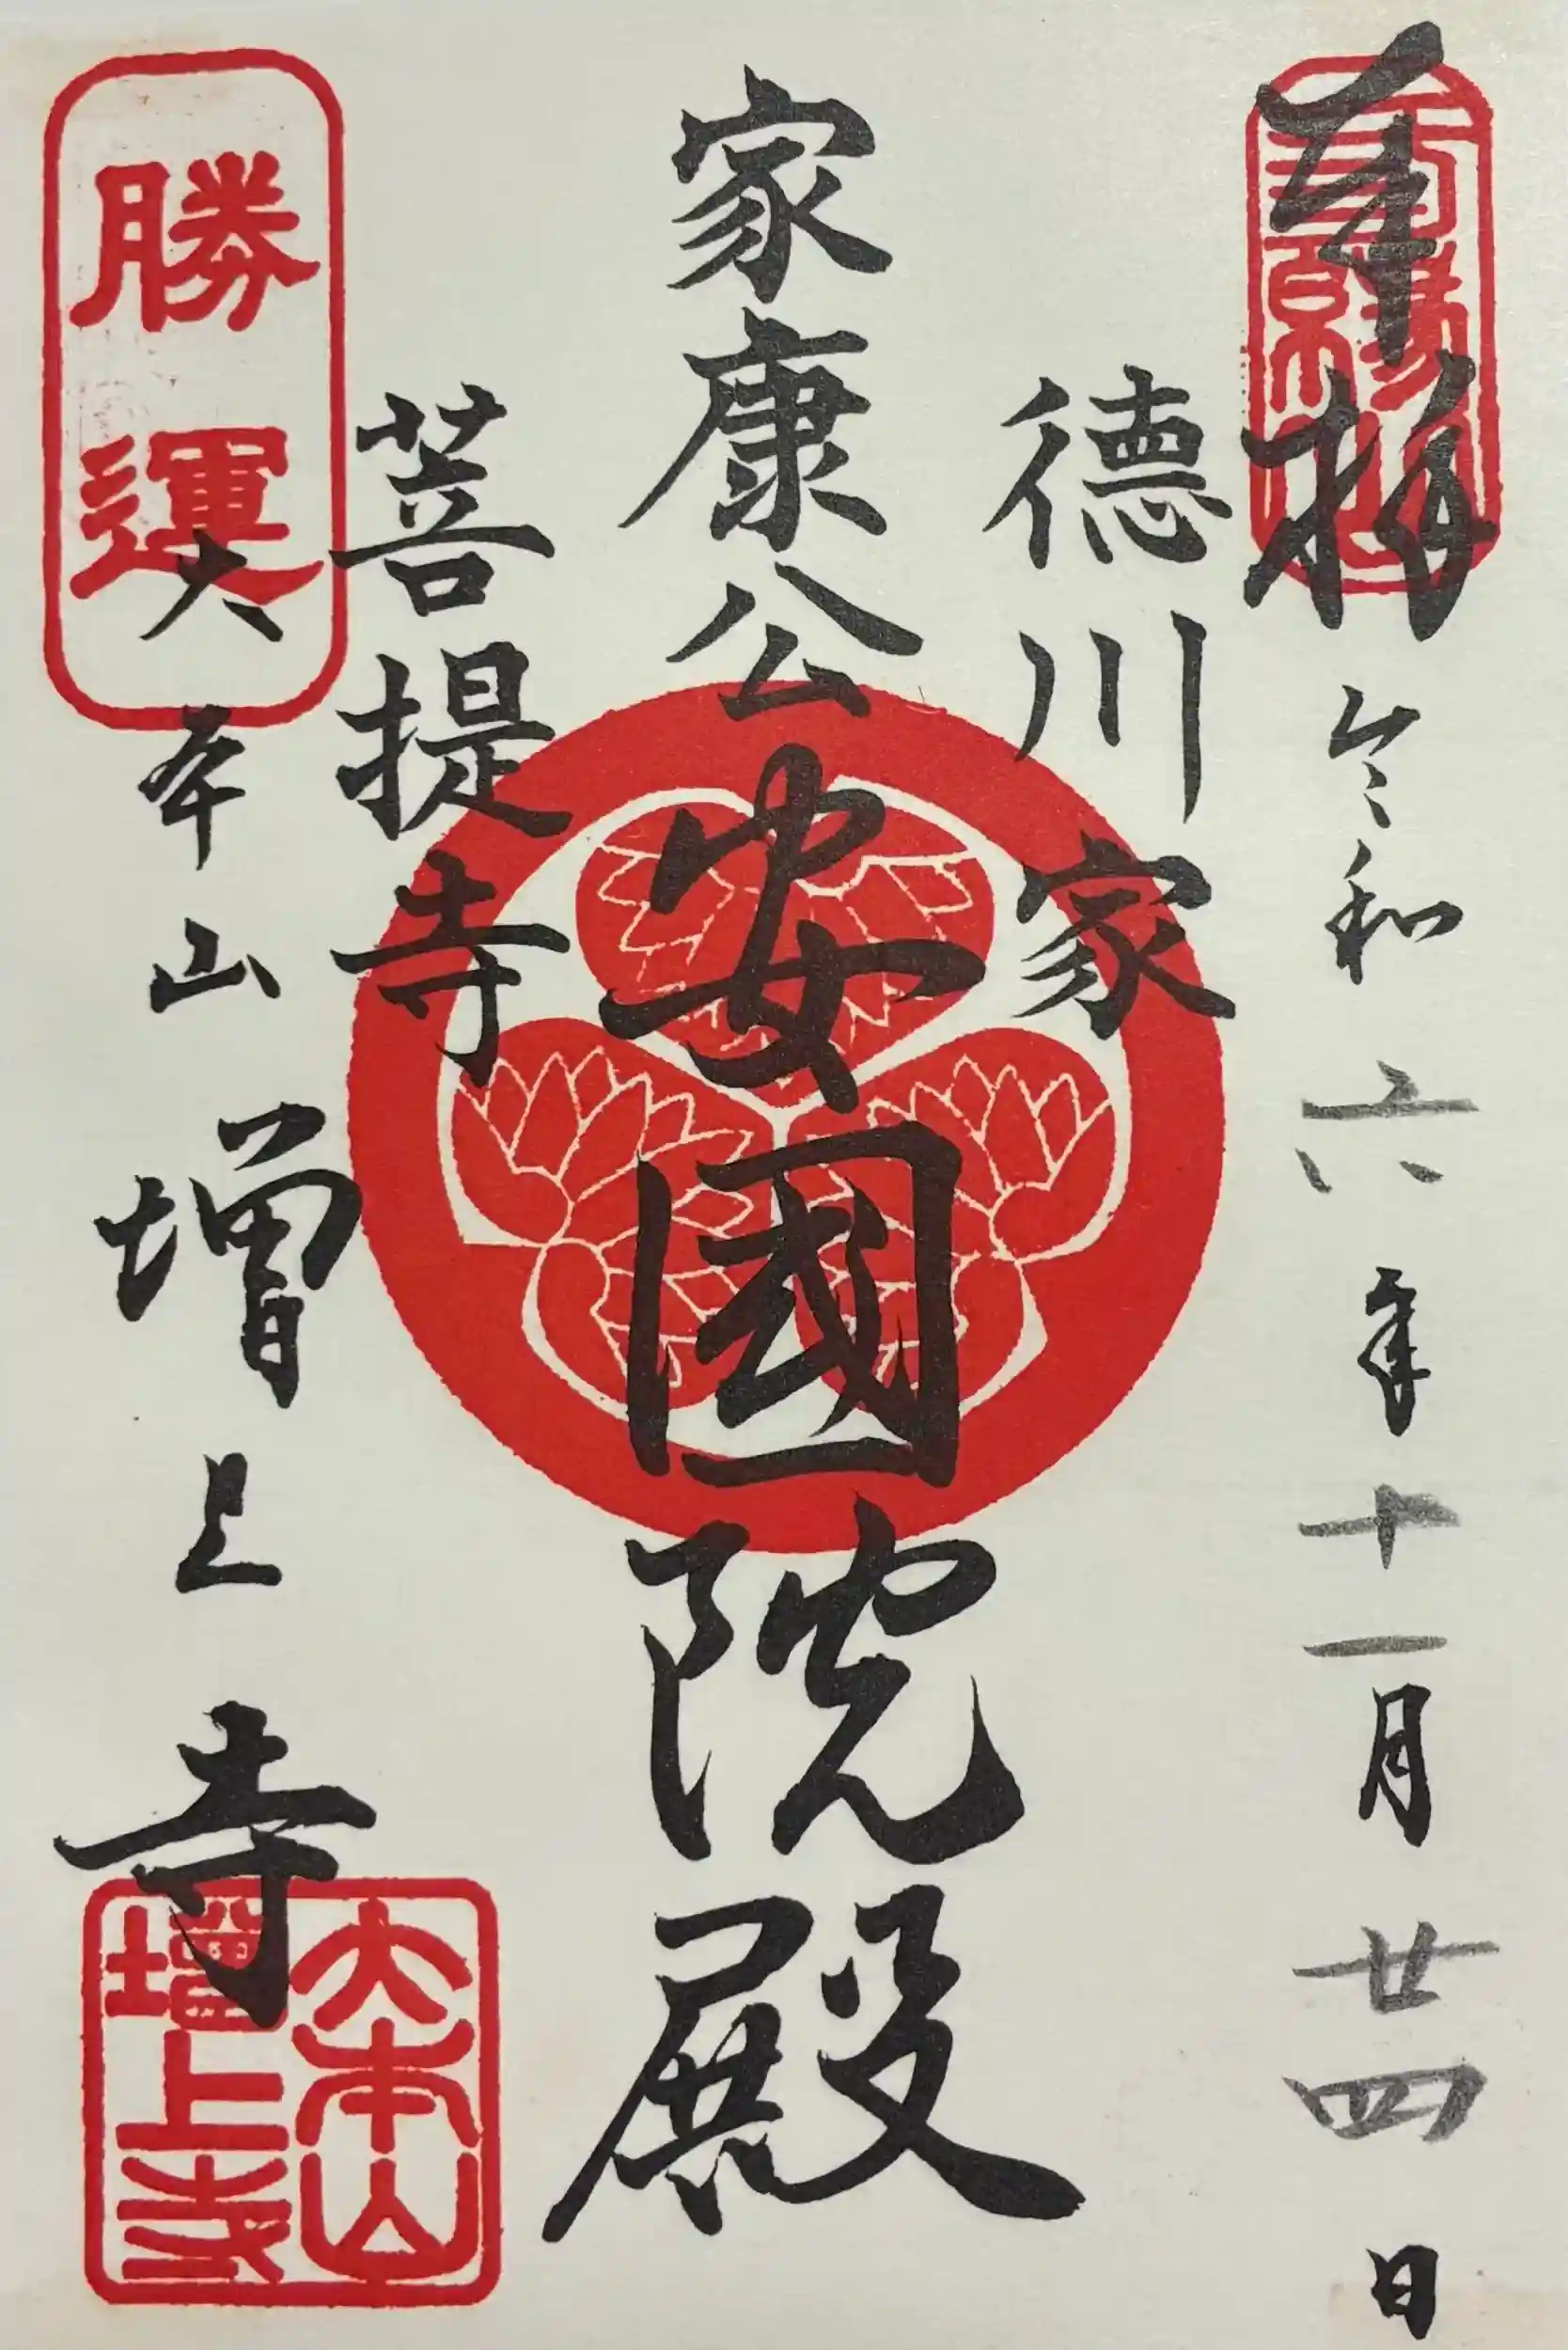 奉拝
令和六年十一月廿四日
德川家
家康公
安國院殿
菩提寺
勝運
大本山増上寺
大本山
增上寺